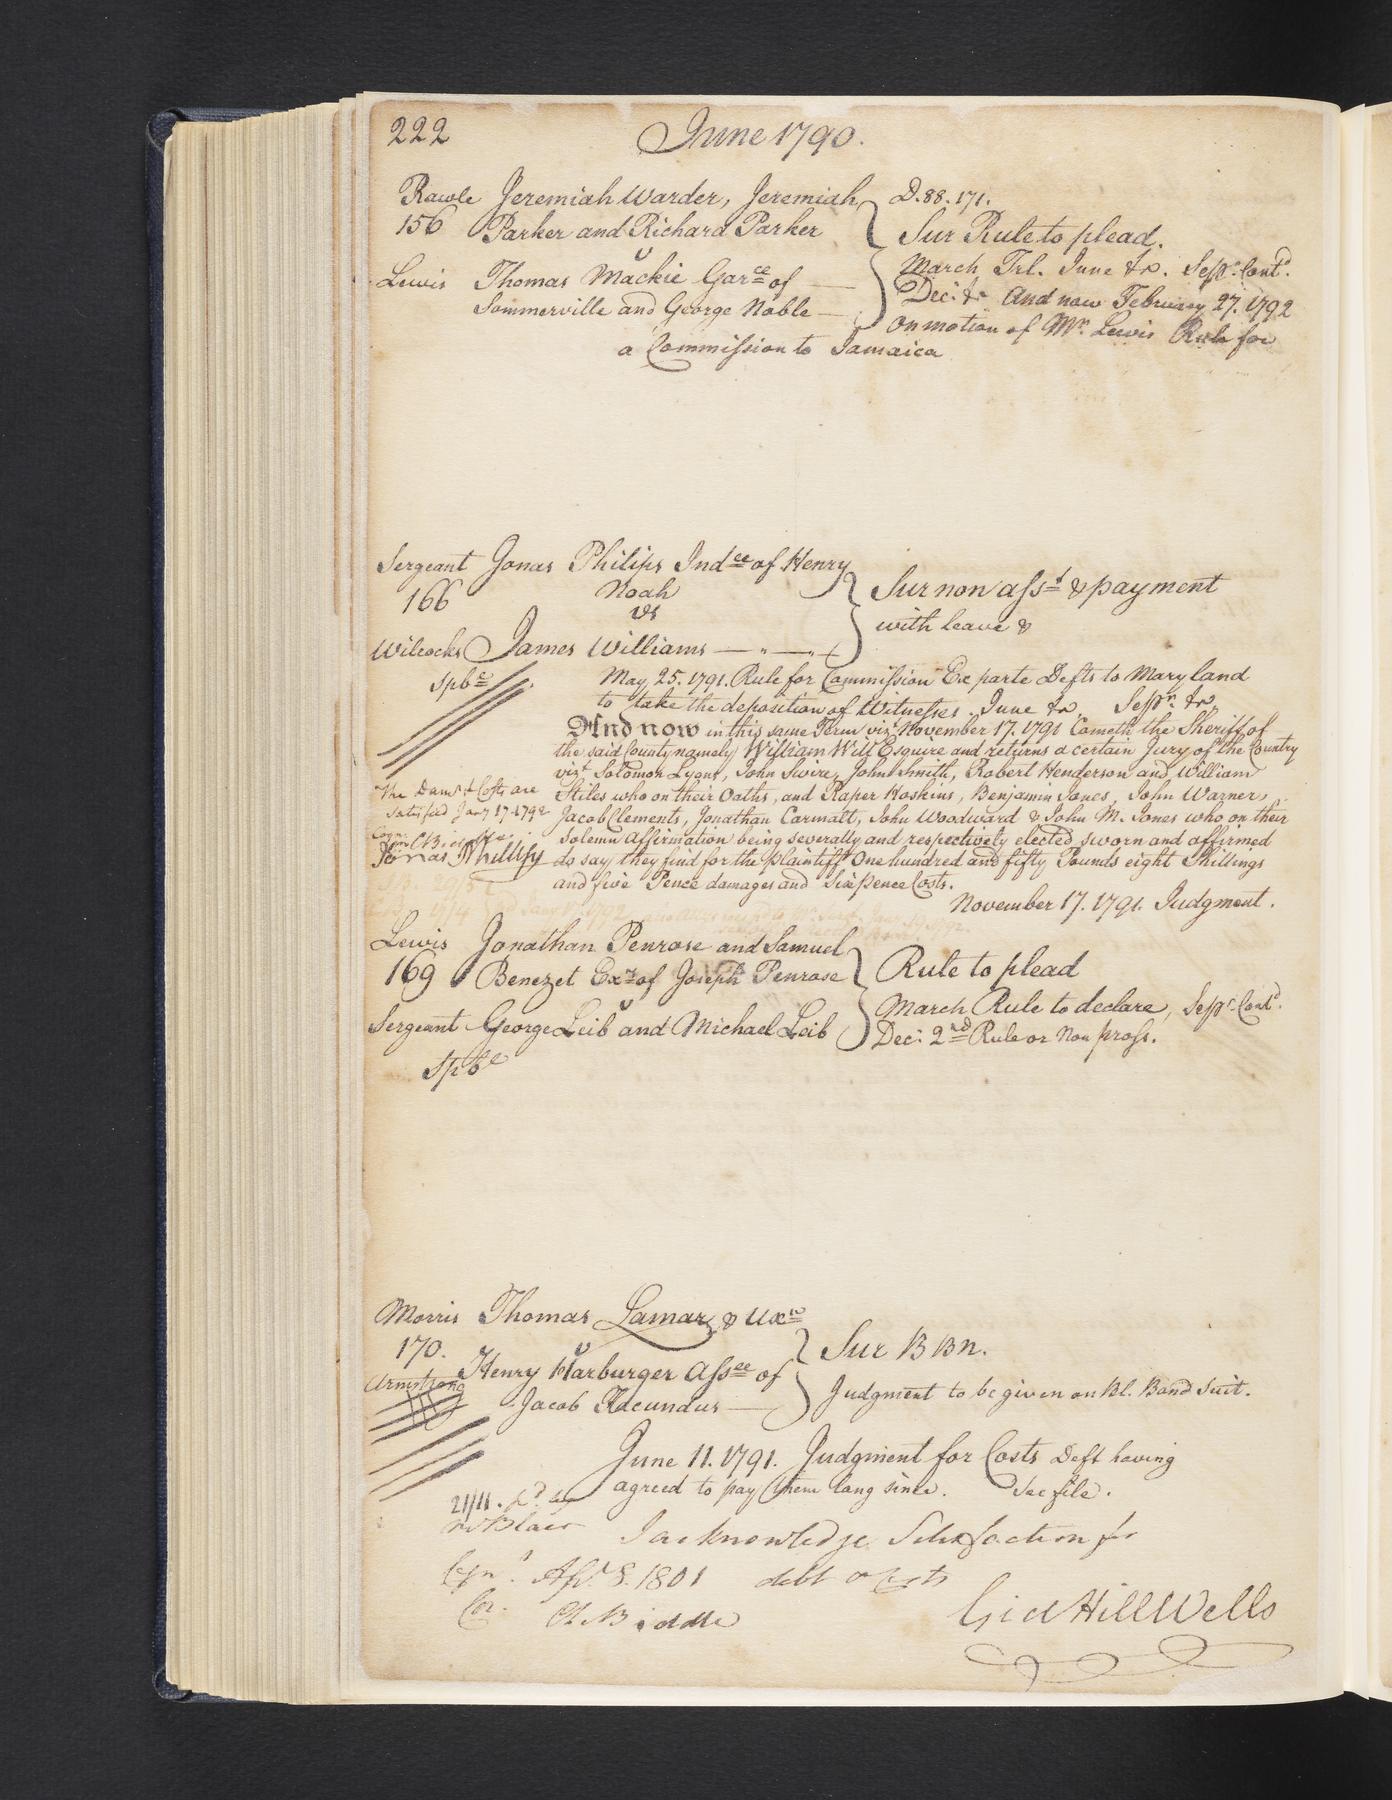 222
June 1790.
Rawle Jeremiah Warder, Jeremiah D. 88. 171.
156 Parker and Richard Parker Sur Rule to plead.
v March Trl. June &c. Sepr. Contd.
Lewis Thomas Mackie Garce of Dec: &c And now February 27. 1792
Sommerville and George Noble on motion of Mr. Lewis Rule for
a Commission to Jamaica
Sergeant Jonas Philips Indee of Henry
166 Noah Sur non asst & payment
vs with leave &
Wilcocks James Williams
Spbe May 25. 1791. Rule for Commission Ex parte Defts to Maryland
to take the deposition of Witnesses. June &c. Sepr. &c.
And now in this same Term vizt November 17. 1791 Cometh the Sheriff of
the said County namely William Will Esquire and returns a certain Jury of the Country
vizt Solomon Lyons, John Swire, John Smith, Robert Henderson and William
The Dams & Costs are Stiles who on their Oaths, and Raper Hoskins, Benjamin Jones, John Warner,
satisfied Jany 17. 1792 Jacob Clements, Jonathan Carmalt, John Woodward & John M. Jones who on their
solemn Affirmation being severally and respectively elected sworn and affirmed
Jonas Phillips do say they find for the plaintiff One hundred and fifty Pounds eight Shillings
and five Pence damages and Six Pence Costs.
November 17. 1791. Judgment.
Lewis Jonathan Penrose and Samuel
169 Benezet Exrs of Joseph Penrose Rule to plead
v March Rule to declare, Sepr. Contd.
Sergeant George Leib and Michael Leib Dec: 2nd Rule or Non pross.
Spbe
Morris Thomas Lamar & Uxr
170. v Sur B Bn.
Armstrong Henry Harburger Assee of Judgment to be given on Bl. Bond Suit.
Jacob Facundus
June 11. 1791. Judgment for Costs Deft having
agreed to pay them long since. See file.
21/11. pd
W Blair I acknowledge Satisfaction for
Apl. 8. 1801 debt & costs
C Biddle
Gid Hill Wells